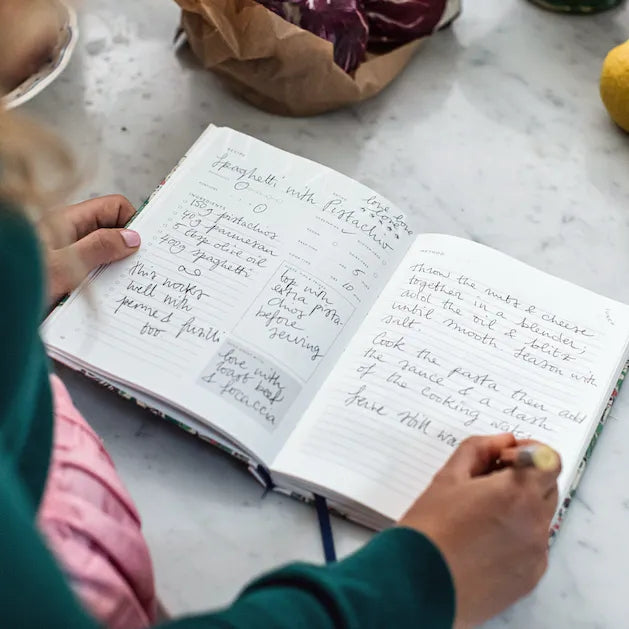 RECIPE
Spaghetti with Pistachio
love love
INGREDIENTS
150g pistachios
40g parmesan
5 tbsp olive oil
400g spaghetti
this works
well with
pennes fusilli
too
5
10
top with
extra pista
chios
before
serving
love with
roast beef
& focaccia
METHOD
throw the nuts & cheese
together in a blender;
add the oil & blitz
until smooth season with
salt
Cook the pasta then add
the sauce & a dash
of the cooking water
serve still wa